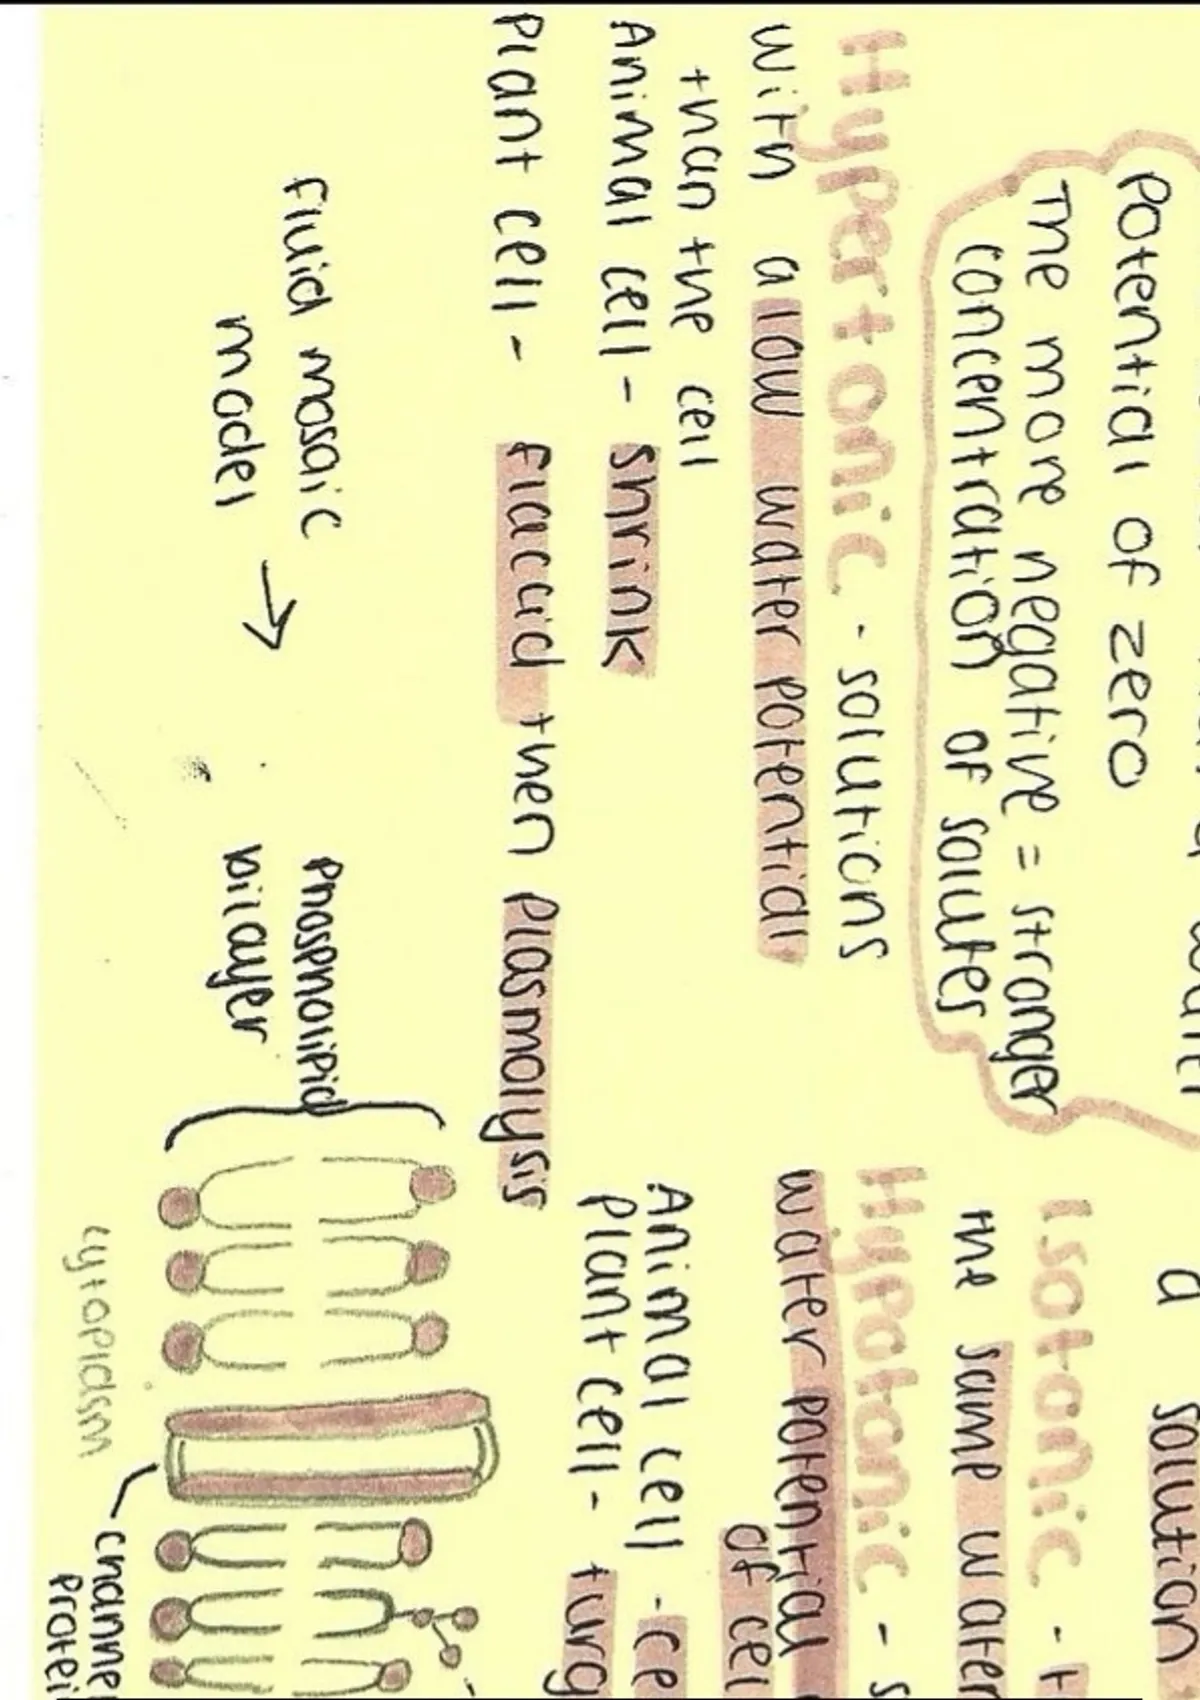 Potential of zero
a solution
The more negative = stronger
concentration of solutes
Isotonic - t
the same water
Hypertonic - solutions
with a low water potential
than the cell
Animal cell - shrink
Plant cell - flaccid then plasmolysis
Hypotonic - s
water potential
of cel
Animal cell - ce
Plant cell - turg
fluid mosaic
model
Phospholipid
bilayer
cytoplasm
channel
Protei